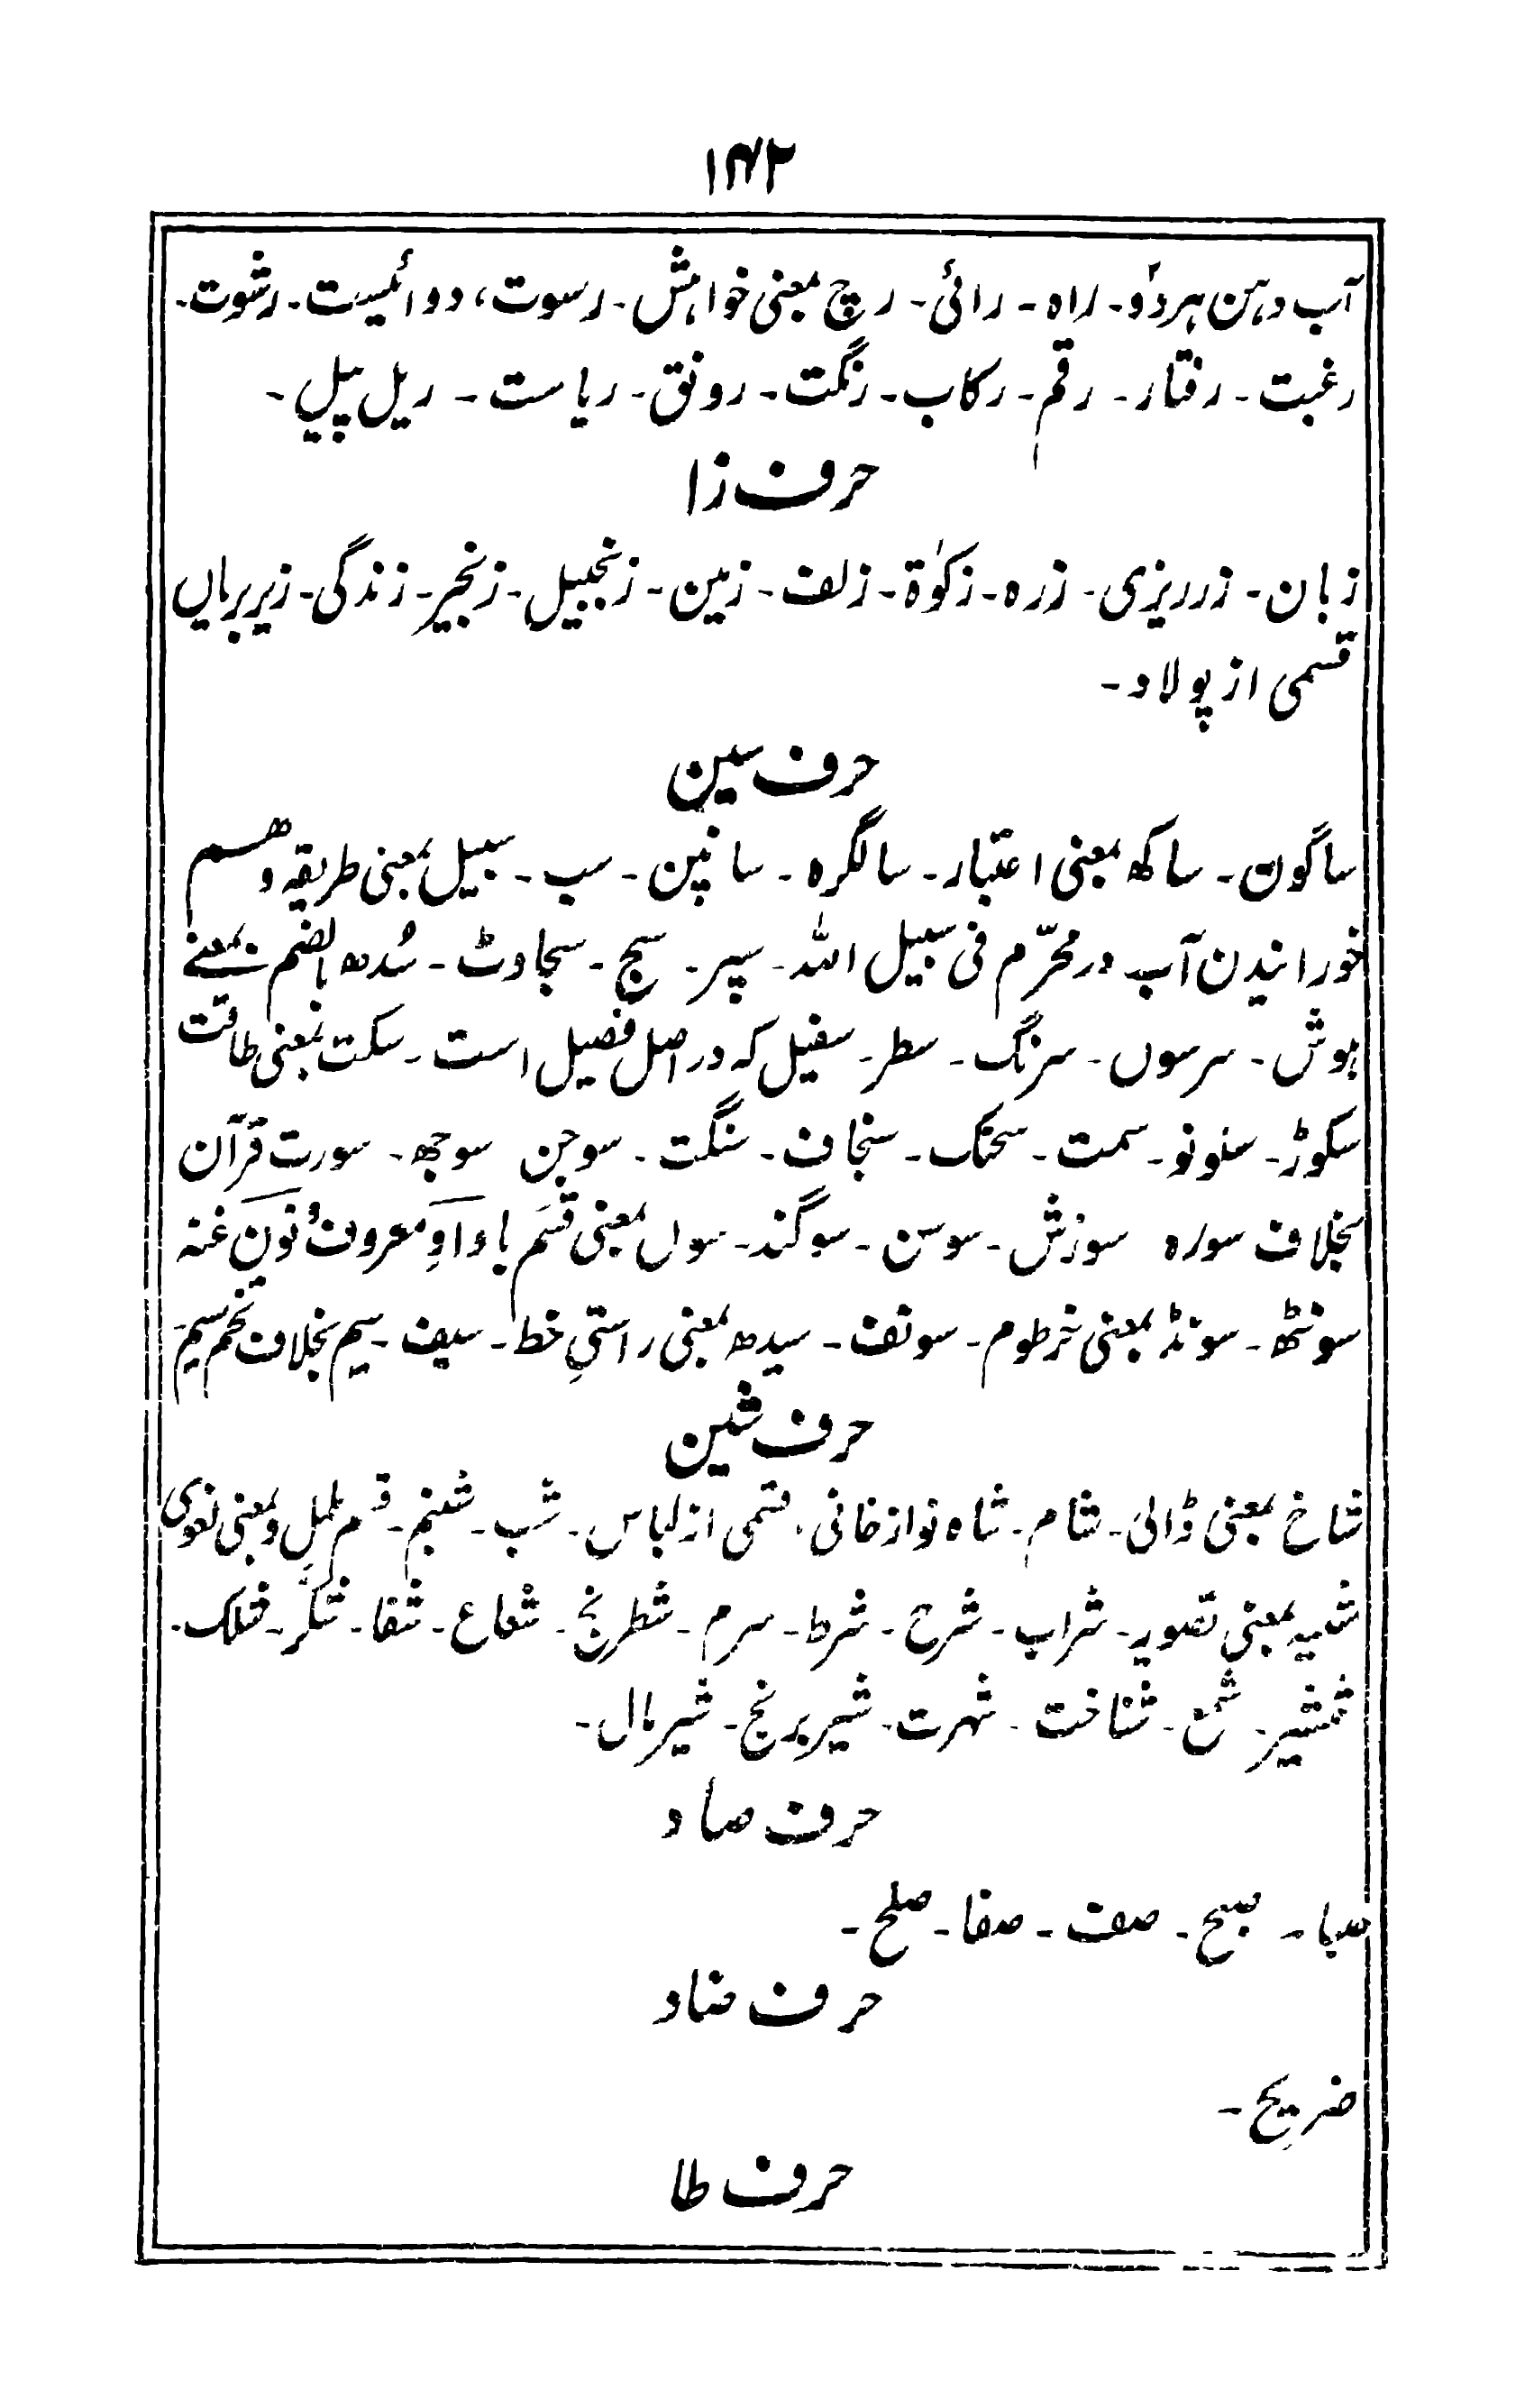 ۱۴۲
آب دہن ہردو۔ راہ۔ رائی۔ رچ بمعنی خواہش۔ رسوت، دوائیست۔ رشوت۔
رغبت۔ رفتار۔ رقم۔ رکاب۔ رنگت۔ رونق۔ ریاست۔ ریل پیل۔
حرف زا
زبان۔ زرریزی۔ زرہ۔ زکوٰۃ۔ زلف۔ زمین۔ زنجبیل۔ زنجیر۔ زندگی۔ زیربریاں
قسمی از پولاو۔
حرف سین
ساگون۔ ساکھ بمعنی اعتبار۔ سالگرہ۔ سانپن۔ سب۔ سبیل بمعنی طریقہ و ھسم
خورانیدن آب در محرّم فی سبیل اللہ۔ سپر۔ سیج۔ سجاوٹ۔ سُدھ بالضم بمعنے
ہوش۔ سرسوں۔ سرنگ۔ سطر۔ سفیل کہ در اصل فصیل است۔ سکت بمعنی طاقت
سکوڑ۔ سنونو۔ سمت۔ سحنک۔ سنجاف۔ سنگت۔ سوجن سوجھ۔ سورت قرآن
بخلاف سورہ سوزش۔ سوسن۔ سوگند۔ سوں بمعنی قسَم با واوِ معروف و نونِ غنہ
سونٹھ۔ سونڈ بمعنی خرطوم۔ سونف۔ سیدھ بمعنی راستیِ خط۔ سیف۔ سیم بخلاف تخم سیم
حرف شین
شاخ بمعنی ڈالی۔ شام۔ شاہ نواز خانی، قسمی از لباس۔ شب۔ شبنم۔ قسم ململِ و بمعنی لغوی
شبیہ بمعنی تصویر۔ شراب۔ شرح۔ شرط۔ سرم۔ شطرنج۔ شعاع۔ شفا۔ شکّر۔ شلک۔
شمشیر۔ شمع۔ شناخت۔ شہرت۔ شیربرنج۔ شیرمال۔
حرف صاد
صبا۔ صبح۔ صف۔ صفا۔ صلح۔
حرف ضاد
ضریح۔
حرف طا